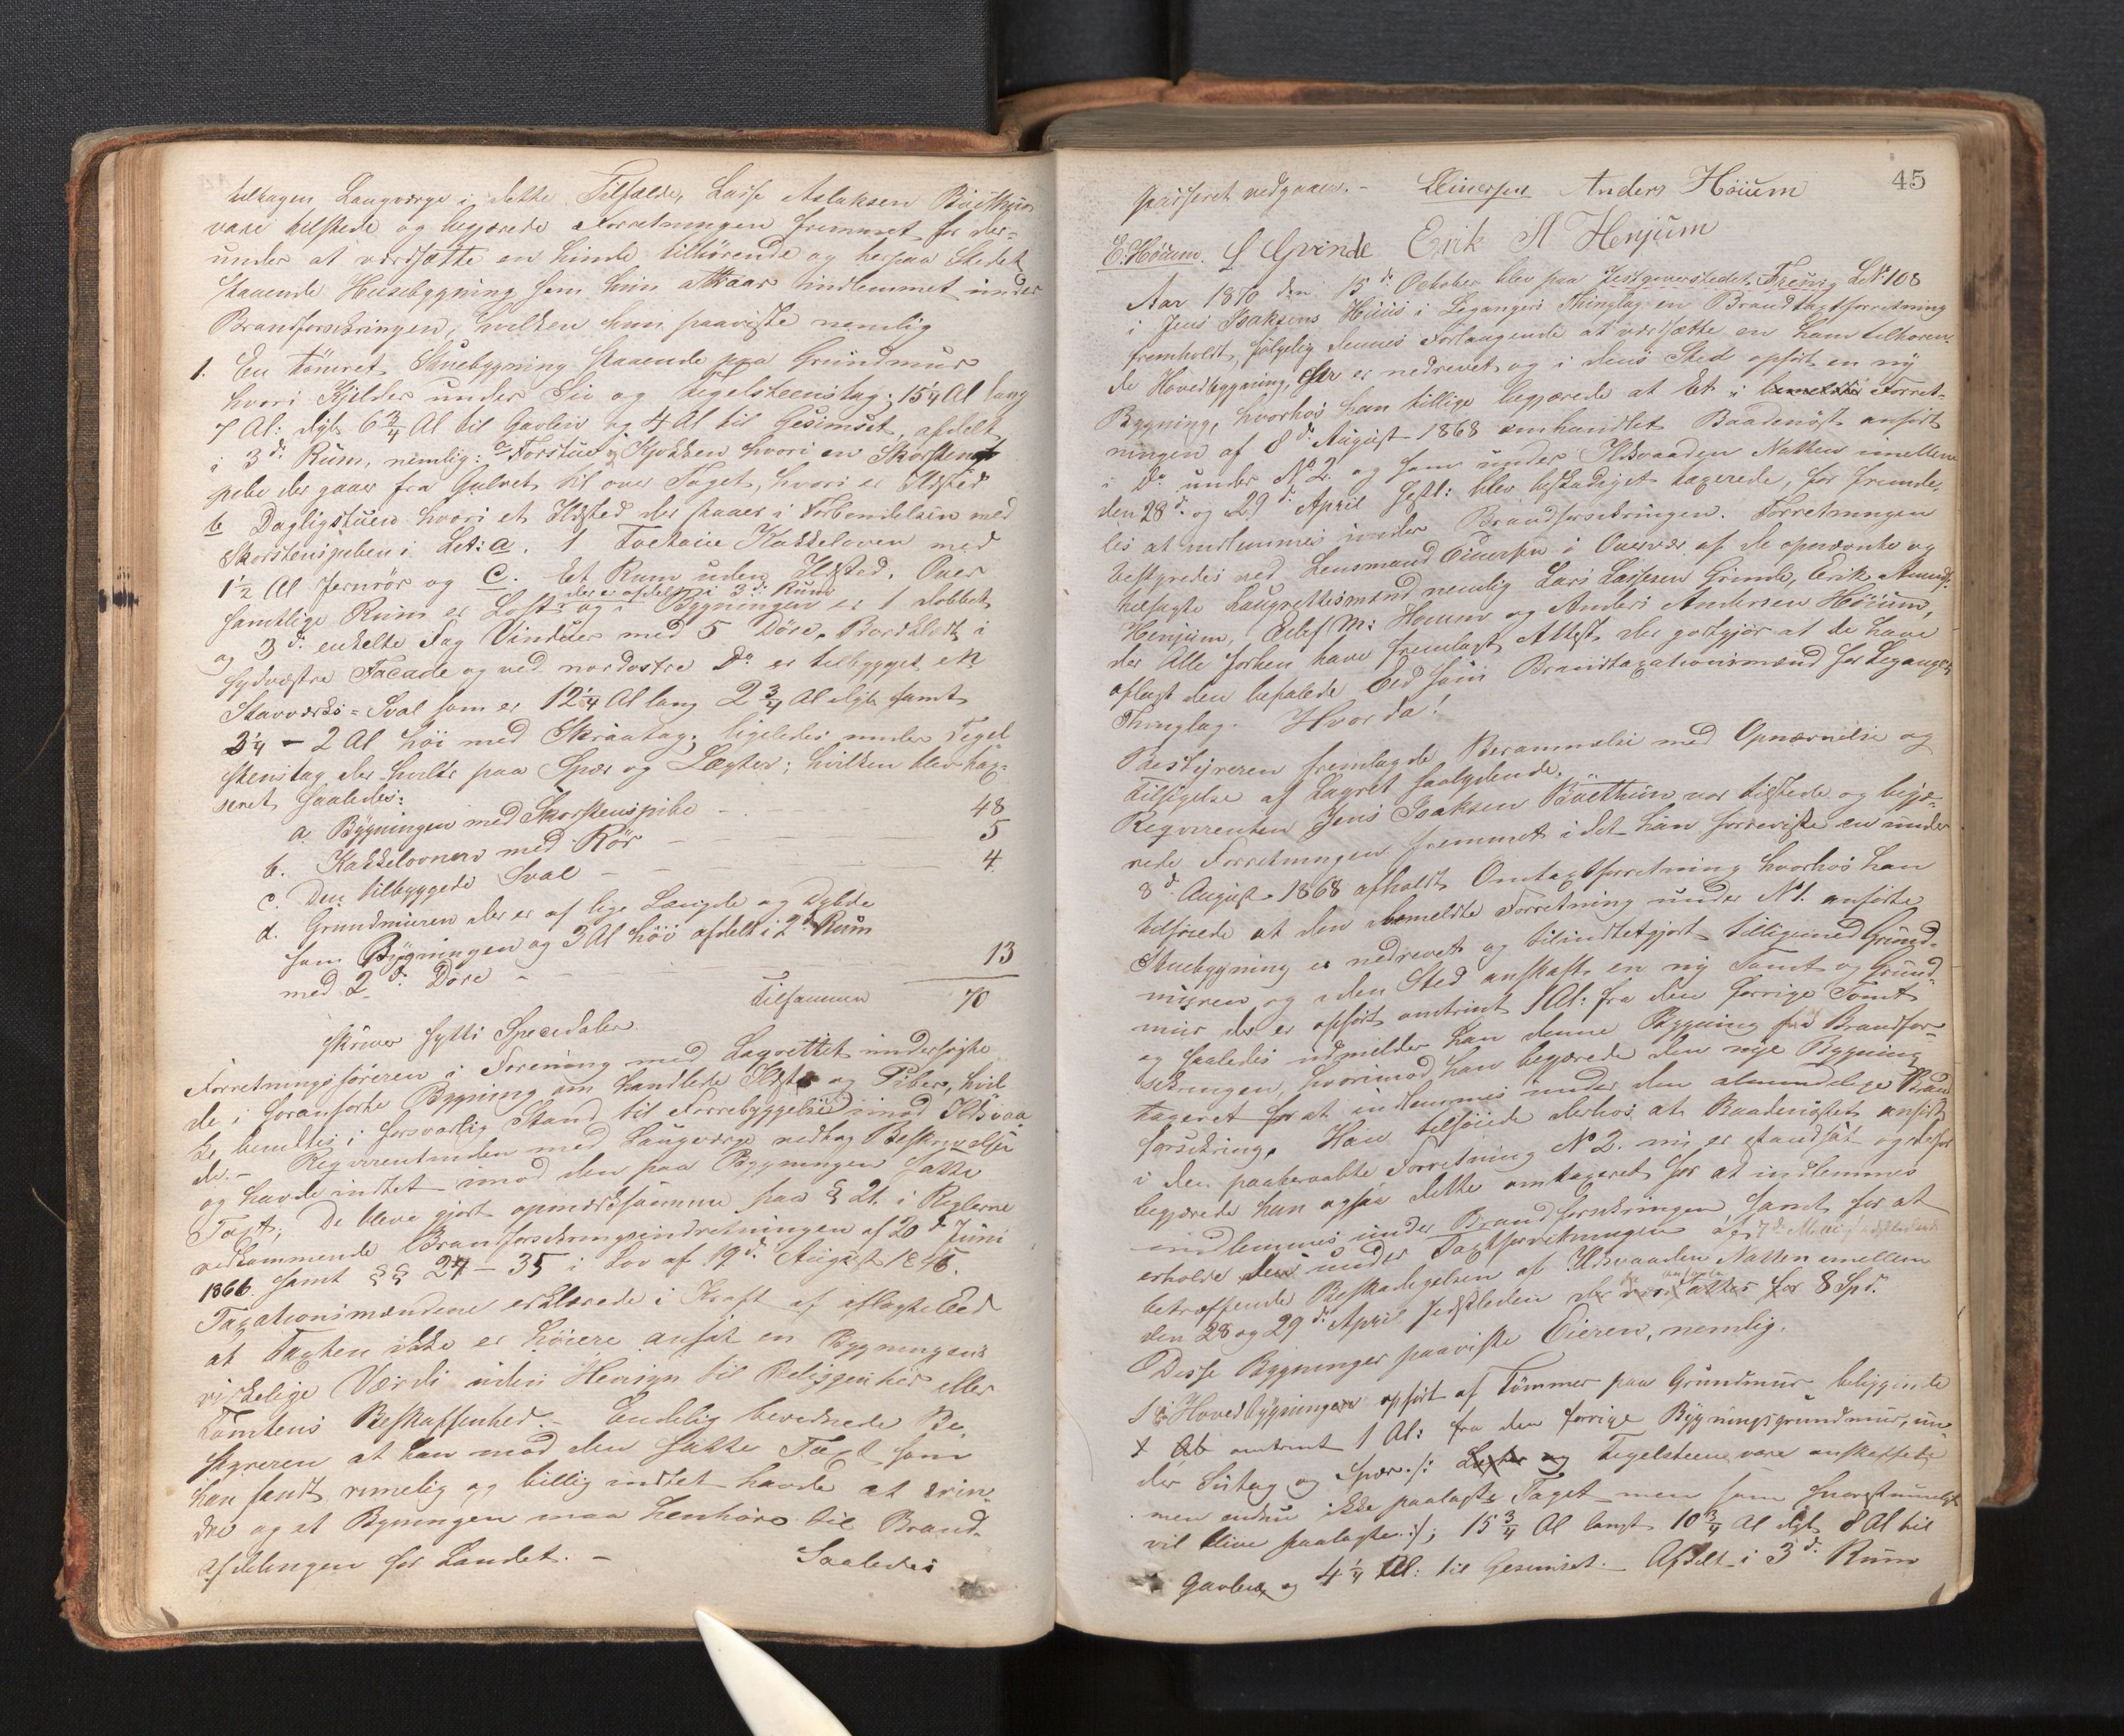 tiltagen Laugværge i dette Tilfælde, Lasse Aslaksen Bøethun
vare tilstede og begjærede Forretningen fremmet for der-
under at værdsætte en hende tilhørende og herpaa Stedet
staaende Husebygning som hun attraar indlemmet under
Brandforsikringen, hvilken hun paaviste nemlig
1. En tømret Stuebygning staaende paa Grundmur
hvori Kjelder under Su og Tegelsteenstag; 15 1/4 Al lang
7 Al: dyb 6 3/4 Al til Gavlen og 4 Al til Gesimset, afdelt
i 3de Rum, nemlig: a Forstue og Kjøkken hvori en Skorstens
pibe der gaaer fra Gulvet til over Taget, hvori er Ildsted
b Dagligstuen hvori et Ildsted der staaer i Forbindelsen med
Skorstenspiben i Lit: a. 1 Toetaies Kakkeloven med
1 1/2 Al Jernrør og C. Et Rum uden Ildsted. Over
samtlige Rum er Loft der er afdelt i 3de Rum og i Bygningen er 1 dobbelt
og 3de enkelte Fag Vinduer med 5 Døre. Bordklædt i
sydvestre Facade og ved nordostre Do er tilbygget en
Stavværks-Sval som er 12 1/4 Al lang 2 3/4 Al dyb samt
3 1/4 - 2 Al høi med Skraatag; ligeledes under Tegel
steenstag der hviler paa Spær og Lægter; hvilken blev tax-
seret saaledes:
a. Bygningen med Skorstenspibe - - 48
b. Kakkelovnen med Rør - - 5
c. Den tilbyggede Sval - - 4
d. Grundmuren der er af lige Længde og Dybde
som Bygningen og 3 Al høi afdelt i 2de Rum
med 2de Døre - - 13
Tilsammen 70
skriver sytti Speciedaler.
Forretningsføreren i Forening med Lagrettet undersøgte
de i foranførte Bygning om handlede Ildsted og Piber, hvil
ke befandtes i forsvarlig Stand til Forrebyggelse imod Ildsvaa
de. - Reqvirentinden med Laugværge vedtog Beskrivelsen
og havde indtet imod den paa Bygningen satte
Taxt; De bleve gjort opmærksomme paa § 21 i Reglerne
vedkommende Brandforsikringsindretningen af 20de Juni
1866 samt §§ 24 - 35 i Lov af 19de August 1845.
Taxationsmændene erklærede i Kraft af aflagte Eed
at Taxten ikke er høiere ansat en Bygningens
virkelige Værdi uden Hensyn til Beliggenhed eller
Tomtens Beskaffenhed. - Endelig bevidnede Be,
styreren at han mod den satte Taxt som
han fandt rimelig og billig indtet havde at erin-
dre og at Bygningen maa henhøre til Brand-
afdelingen for Landet. - Saaledes
45
passeret vedgaaes. - Einersen Anders Høium
E. Høium. L Grinde Erik A Henjum
Aar 1870 den 15de October blev paa Jestgiverstedet Frenig LNr 108
i Jens Isaksens Huus i Leganger Thinglag en Brandtaxtforretning
fremholdt, følgelig dennes Forlangende at værdsætte en ham tilhøren-
de Hovedbygning, der er nedrevet og i dens Sted opført en ny
Bygning, hvorhos han tillige begjærede at Et i bemeldte Forret-
ningen af 8de August 1868 omhandlet Baadnøst anført
i Do under No 2 og som under Ildsvaaden Natten imellem
den 28de og 29de April sestl: blev beskadiget taxerede, for fremde-
les at indlemmes under Brandforsikringen. Forretningen
bestyredes ved Lensmand Einersen i Overvær af de opnævnte og
tilsagte Laugrettesmænd nemlig Lars Lassesen Grinde, Erik Amund.
Henjum, Eelef M: Høium og Anders Andersen Høium,
der Alle forhen have fremlagt Attest der godtgjør at de have
aflagt den befalede Eed som Brandtaxationsmænd for Leganger
Thinglag. Hvorda!
Bestyreren fremlagde Berammelse med Opnævnelse og
Tilsigelse af Lagret saalydende.
Reqvirenten Jens Isaksen Bøethun var tilstede og begjæ-
rede Forretningen fremmet i det han forreviste en under
8de August 1868 afholdt Omtaxtforretning hvorhos han
tilføiede at den i bemeldte Forretning under No 1. anførte
Stuebygning er nedrevet og tilindtetgjort tilligemed Grund-
muren og i dens Sted anskaft en ny Tomt og Grund-
mur der er opført omtrent 1 Al: fra den forrige Tomt
og saaledes udmelder han denne Bygning fra Brandfor-
sikringen, hvorimod han begjærede den nye Bygning
taxeret for at indlemmes under den almindelige Brand
forsikring. Han tilføiede derhos at Baadnøstet anført
i den paaberaabte Forretning No 2. nu er istandsat og derfor
begjærede han ogsaa dette omtaxeret for at indlemmes
indlemmes under Brandforsikringen samt for at
erholde den under Taxtforretningen af 7de Mai
betræffende Beskadigelsen af Ildsvaaden Natten imellem
den 28 og 29de April sidstleden der for 8 Spd.
Disse Bygninger paaviste Eieren, nemlig.
1 Hovedbygningen opført af Tømmer paa Grundmur beliggende
omtrent 1 Al: fra den forrige Bygningsgrundmur, un-
der Sutag og Spær. /: Tegelsteen være anskaffede
men endnu ikke paalagte Taget men som snarestmuligt
vil blive paalagte :/; 15 3/4 Al langt 10 3/4 Al dyb 8 Al til
Gavlene og 4 1/4 Al: til Gesimset. Afdelt i 3de Rum